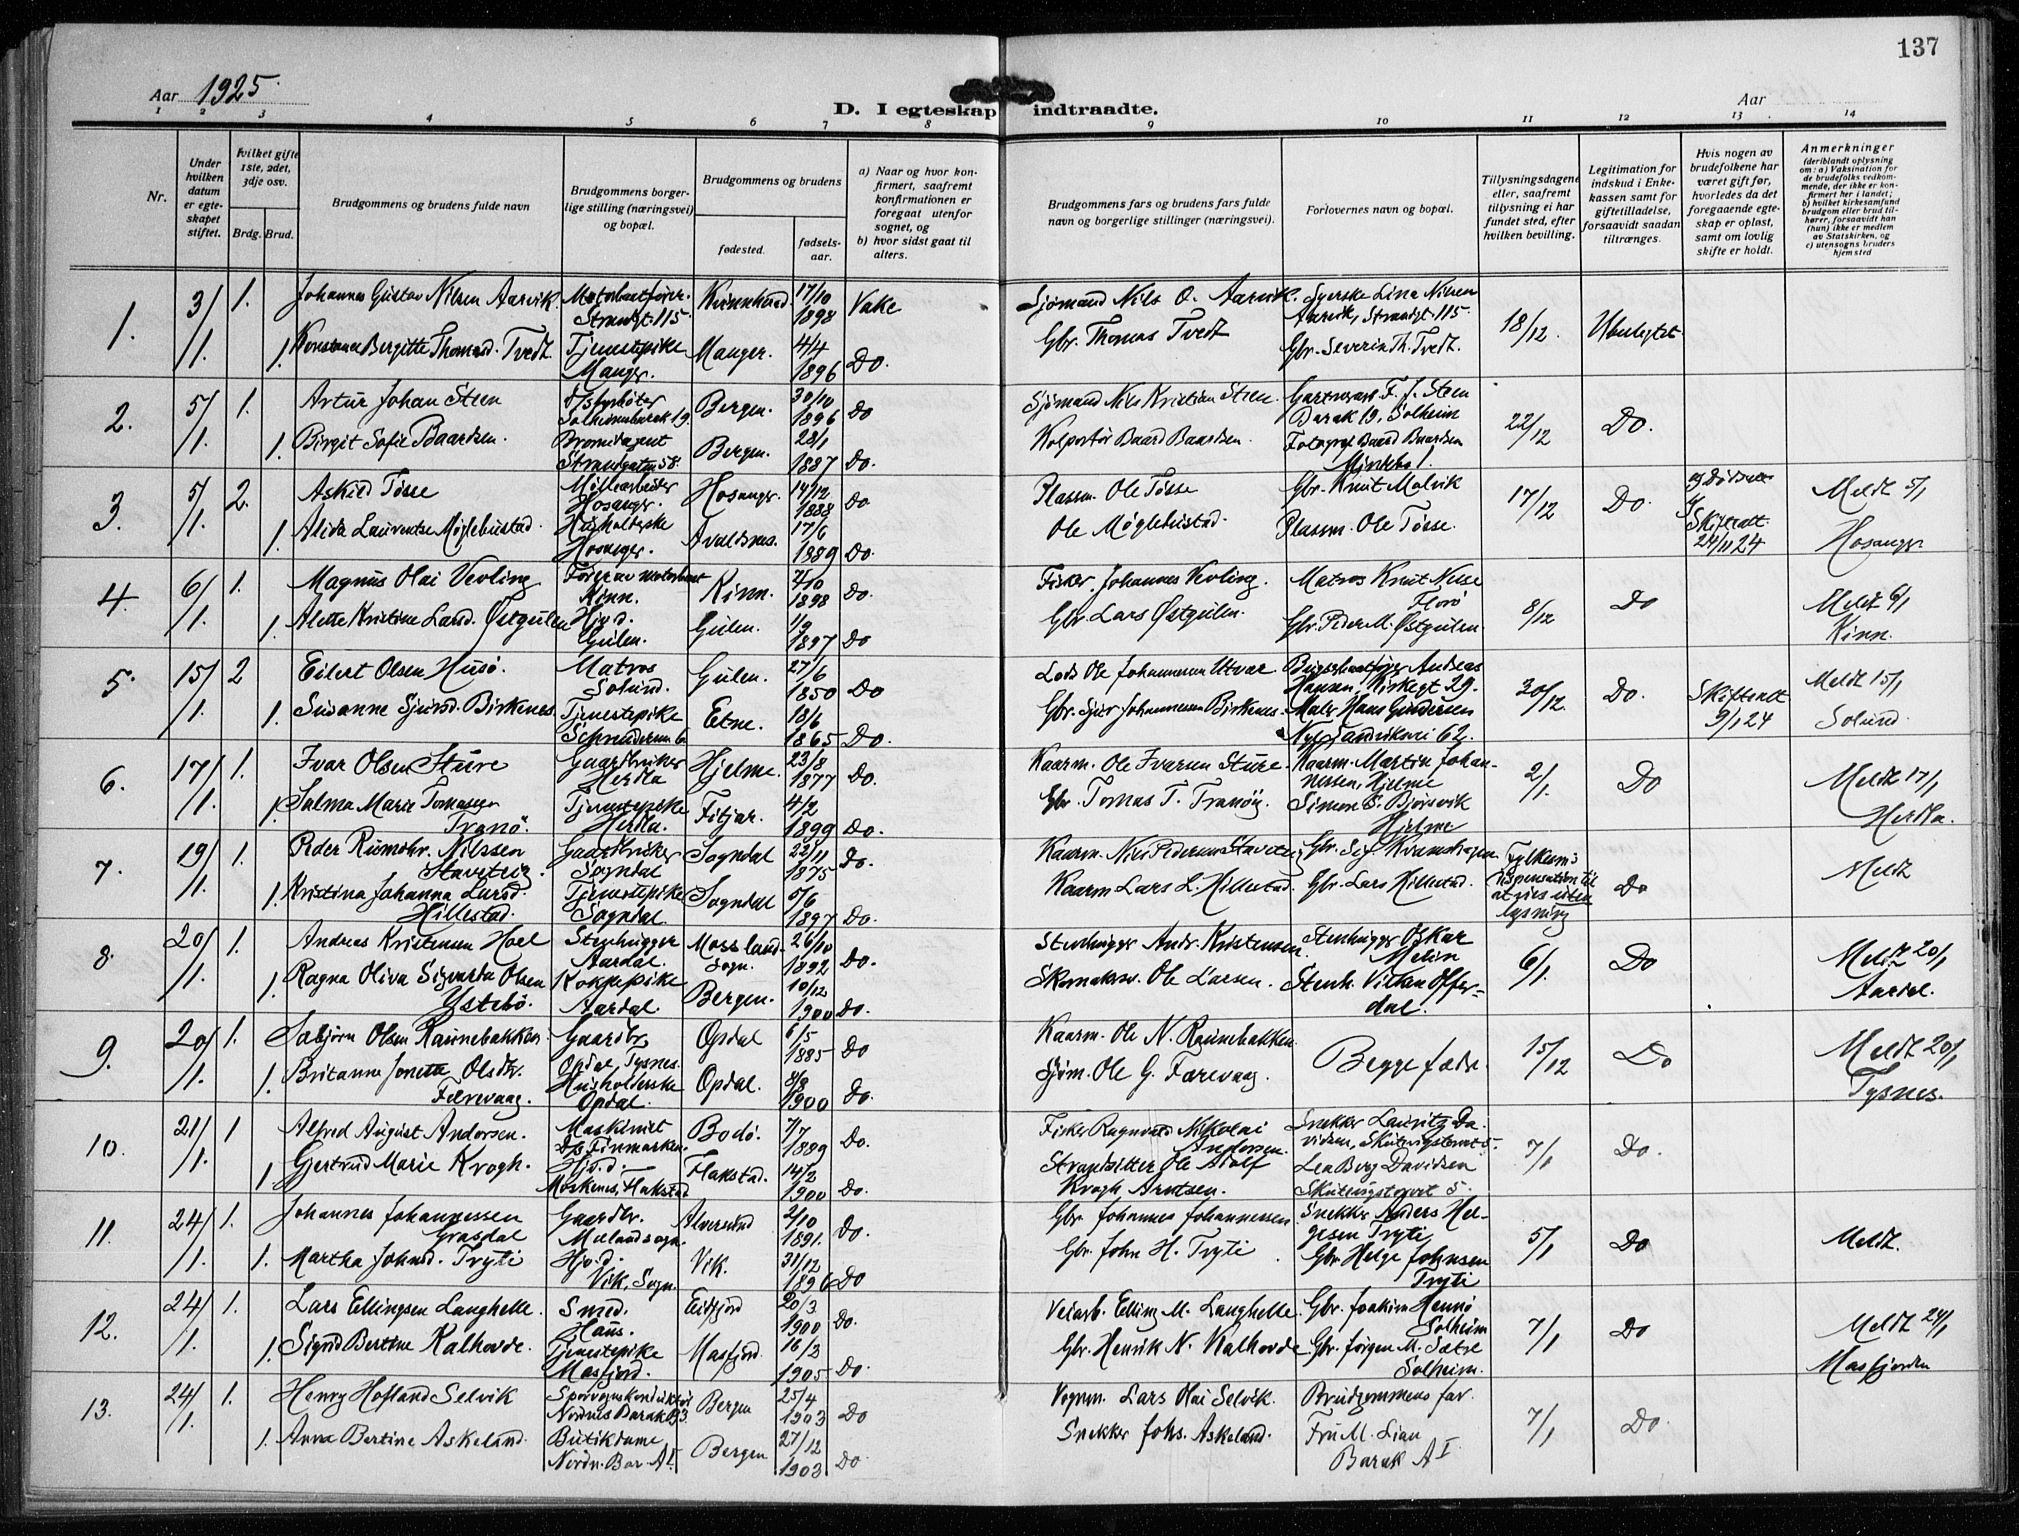 137
Aar 1925.
D. I egteskap indtraadte.
Aar
1 2 3 4 5 6 7 8 9 10 11 12 13 14
Nr.
Under hvilken datum er egteskapet stiftet.
hvilket gifte 1ste, 2det, 3dje osv.
Brdg. Brud.
Brudgommens og brudens fulde navn
Brudgommens borgerlige stilling (næringsvei) og bopæl.
Brudgommens og brudens
fødested.
fødselsaar.
a) Naar og hvor konfirmert, saafremt konfirmationen er foregaat utenfor sognet, og
b) hvor sidst gaat til alters.
Brudgommens fars og brudens fars fulde navn og borgerlige stillinger (næringsvei).
Forlovernes navn og bopæl.
Tillysningsdagene eller, saafremt tillysning ei har fundet sted, efter hvilken bevilling.
Legitimation for indskud i Enkekassen samt for giftetilladelse, forsaavidt saadan tiltrænges.
Hvis nogen av brudefolkene har været gift før, hvorledes da det foregaaende egteskap er opløst, samt om lovlig skifte er holdt.
Anmerkninger
(deriblandt oplysning om: a) Vaksination for de brudefolks vedkommende, der ikke er konfirmert her i landet; b) hvilket kirkesamfund brudgom eller brud tilhører, forsaavidt han (hun) ikke er medlem av Statskirken, og c) utensogns bruders hjemsted
1. 3/1. 1. Johannes Gustav Nilsen Aarvik. Motorbaatfører. Strandgt. 115. Kvinnherad. 17/10 1898 Vake Sjømand Nils O. Aarvik. Syerske Lina Nilsen Aarvik, Strandgt. 115. 18/12. Ubuligtet
1. Konstanse Bergitte Thomasd. Tvedt Tjenestepike Manger. Manger. 4/4 1896 Do. Gbr. Thomas Tvedt Gbr. Severin Th. Tvedt.
2. 5/1. 1. Artur Johan Steen Solheimsbarak 19. Bergen. 30/10 1896 Do Sjømand Nils Kristian Steen. F. J. Steen Barak 19, Solheim 22/12 Do.
1. Birgit Sofie Baardsen. Strandgaten 58. Bergen. 28/1 1887 Do. Kolportør Baard Baardsen. Fotograf Baard Baardsen
3. 5/1. 2. Askild Tøsse Hosanger. Hosanger. 14/12 1888 Do Plassm. Ole Tøsse Gbr. Knut Molvik 17/12 Do. Skiftealt. 24/11 24 Meldt 5/1 Hosanger
1. Alida Lauventse Møglebustad. Husholderske Hosanger. Avaldsnes. 17/6 1889 Do. Ole Møglebustad. Plassm. Ole Tøsse.
4. 6/1. 1. Magnus Olai Vevling Fører av motorbaat Kinn. Kinn. 2/10 1898 Do. Fisker. Johannes Vevling. Matros Knut Nuse Florø 8/12 Do Meldt 6/1 Kinn.
1. Alette Kristine Larsd. Østgulen Hjvd. Gulen. Gulen. 1/9 1897 Do Gbr. Lars Østgulen. Gbr. Peder M. Østgulen.
5. 15/1. 2 Eilert Olsen Husø. Matros Solund. Gulen. 27/6 1850 Do Lods Ole Johannessen Utvær Andreas Hansen, Kirkegt 29. 30/12. Do. Skiftealt 9/1 24 Meldt 15/1 Solund.
1. Susanne Sjursd. Birkenes. Tjenestepike Etne. 18/6 1865 Do. Gbr. Sjur Johannessen Birkenes. Maler Hans Gundersen Nye Sandviksvei 62.
6. 17/1. 1. Ivar Olsen Sture Gaardbruker Herdla Hjelme. 23/8 1877 Do. Kaarm. Ole Ivarsen Sture. Kaarm. Martin Johannessen, Hjelme 2/1. Do Meldt 17/1 Herdla.
1. Salma Marie Tomasen Tranø. Tjenestepike Herdla. Fitjar. 4/2 1899 Do. Gbr. Tomas T. Tranøy. Simon Bjørsvik Hjelme
7. 19/1. 1. Peder Rumohr. Nilssen Stavetrig. Gaardbruker Sogndal Sogndal 22/11 1875 Do. Kaarm. Nils Pedersen Gbr. Fylkesm's dispensation til at vies uten lysning Do Meldt
1. Kristina Johanna Larsd. Hillestad. Tjenestepike Sogndal. Sogndal 5/6 1897 Do. Kaarm Lars L. Hillestad. Gbr. Lars Hillestad.
8. 20/1. 1. Andreas Kristensen Hoel Stenhugger Aardal. Moss landsogn. 26/10 1892 Do. Stenhugger Andr. Kristensen. Stenhugger Oskar Melin 6/1. Do Meldt 20/1 Aardal.
1. Ragna Oliva Sigvarda Olsen Ystebø. Kokkepike Aardal. Bergen. 10/12 1900 Do. Skomakerm. Ole Larsen. Stenh. Offerdal.
9. 20/1. 1. Sabjørn Olsen Raunebakken Gaardbr. Opdal, Tysnes. Opdal 6/5 1885 Do Kaarm. Ole N. Raunebakken. Begge fædre. 15/12 Do Meldt 20/1 Tysnes.
1. Britanna Jonetta Olsdtr. Færevaag. Husholderske Opdal. Opdal. 1900 Do. Sjøm. Ole G. Færevaag.
10. 21/1. 1 Alfred August Andersen. Maskinist D/s Finmarken. Bodø. 7/7 1889 Do. Fisker Ragnvald Nikolai Andersen. Snekker Lauritz Davidsen, Skuteviqstorvet 5. 7/1 Do.
1 Gjertrud Marie Krogh. Hjvd. Moskenes, Flakstad Flakstad. 14/2 1900 Do. Strandsitter Ole Adolf Krogh Arntsen. Lea Berg Davidsen Skutevigstorvet 5.
11. 24/1. 1. Johannes Johannessen Grasdal Gaardbr. Mælandsogn. Alversund 2/10 1891. Do. Gbr. Johannes Johannessen Snekker Anders Helgesen Tryti 5/1 Do Meldt.
1. Martha Johnsd. Tryti Hjvd. Vik, Sogn. Vik. 31/12 1896 Do Gbr. John H. Tryti Gbr. Helge Johnsen Tryti
12. 24/1. 1. Lars Ellingsen Langhelle. Smed. Haus. Eidfjord 20/3 1900 Do. Veiarb. Elling M. Langhelle. Gbr. Joakim Hennø Solheim 7/1 Do Meldt 24/1 Masfjorden
1. Sigrid Bertine Kalhovde. Tjenestepike Masfjord. Masfjord. 16/3 1905 Do. Gbr. Henrik N. Kalhovde. Gbr. Jørgen M. Sætre Solheim.
13. 24/1. 1. Henry Hofland Selvik Sporvognskonduktør Nordnes Barak Bergen 25/4 1903 Do Vognm. Lars Olai Selvik. Brudgommens far. 7/1 Do.
1. Anna Bertine Askeland. Butikdame Nordn. Bar. A I. Bergen 27/12 1903 Do Snekker Johs. Askeland. Fru M. Lian Barak A I.